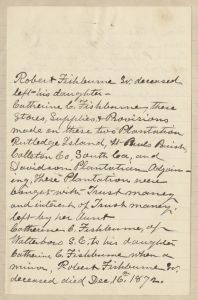 Robert Fishburne Sr. deceased
left his daughter —
Catherine C. Fishburne, these
Stores, Supplies, & Provisions
made on these two Plantation
Rutledge Island, St Pauls Parish,
Colleton Co. South Ca, and
Davidson Plantation Adjoin-
ing, These Plantation were
bought with Trust money
and interest of Trust money,
left by her Aunt
Catherine C. Fishburne, of
Walterboro S.C. to his daughter
Catherine C. Fishburne when a
minor, Robert Fishburne Sr.
deceased died Dec. 16. 1872.